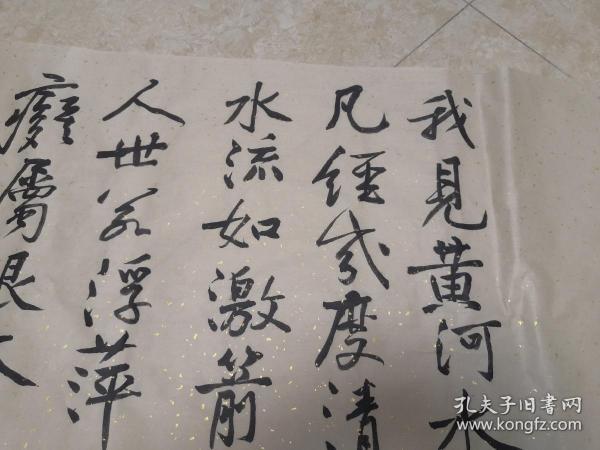 我見黃河水
凡經幾度清
水流如激箭
人世若浮萍
癡屬根本
孔夫子旧书网
www.kongfz.com